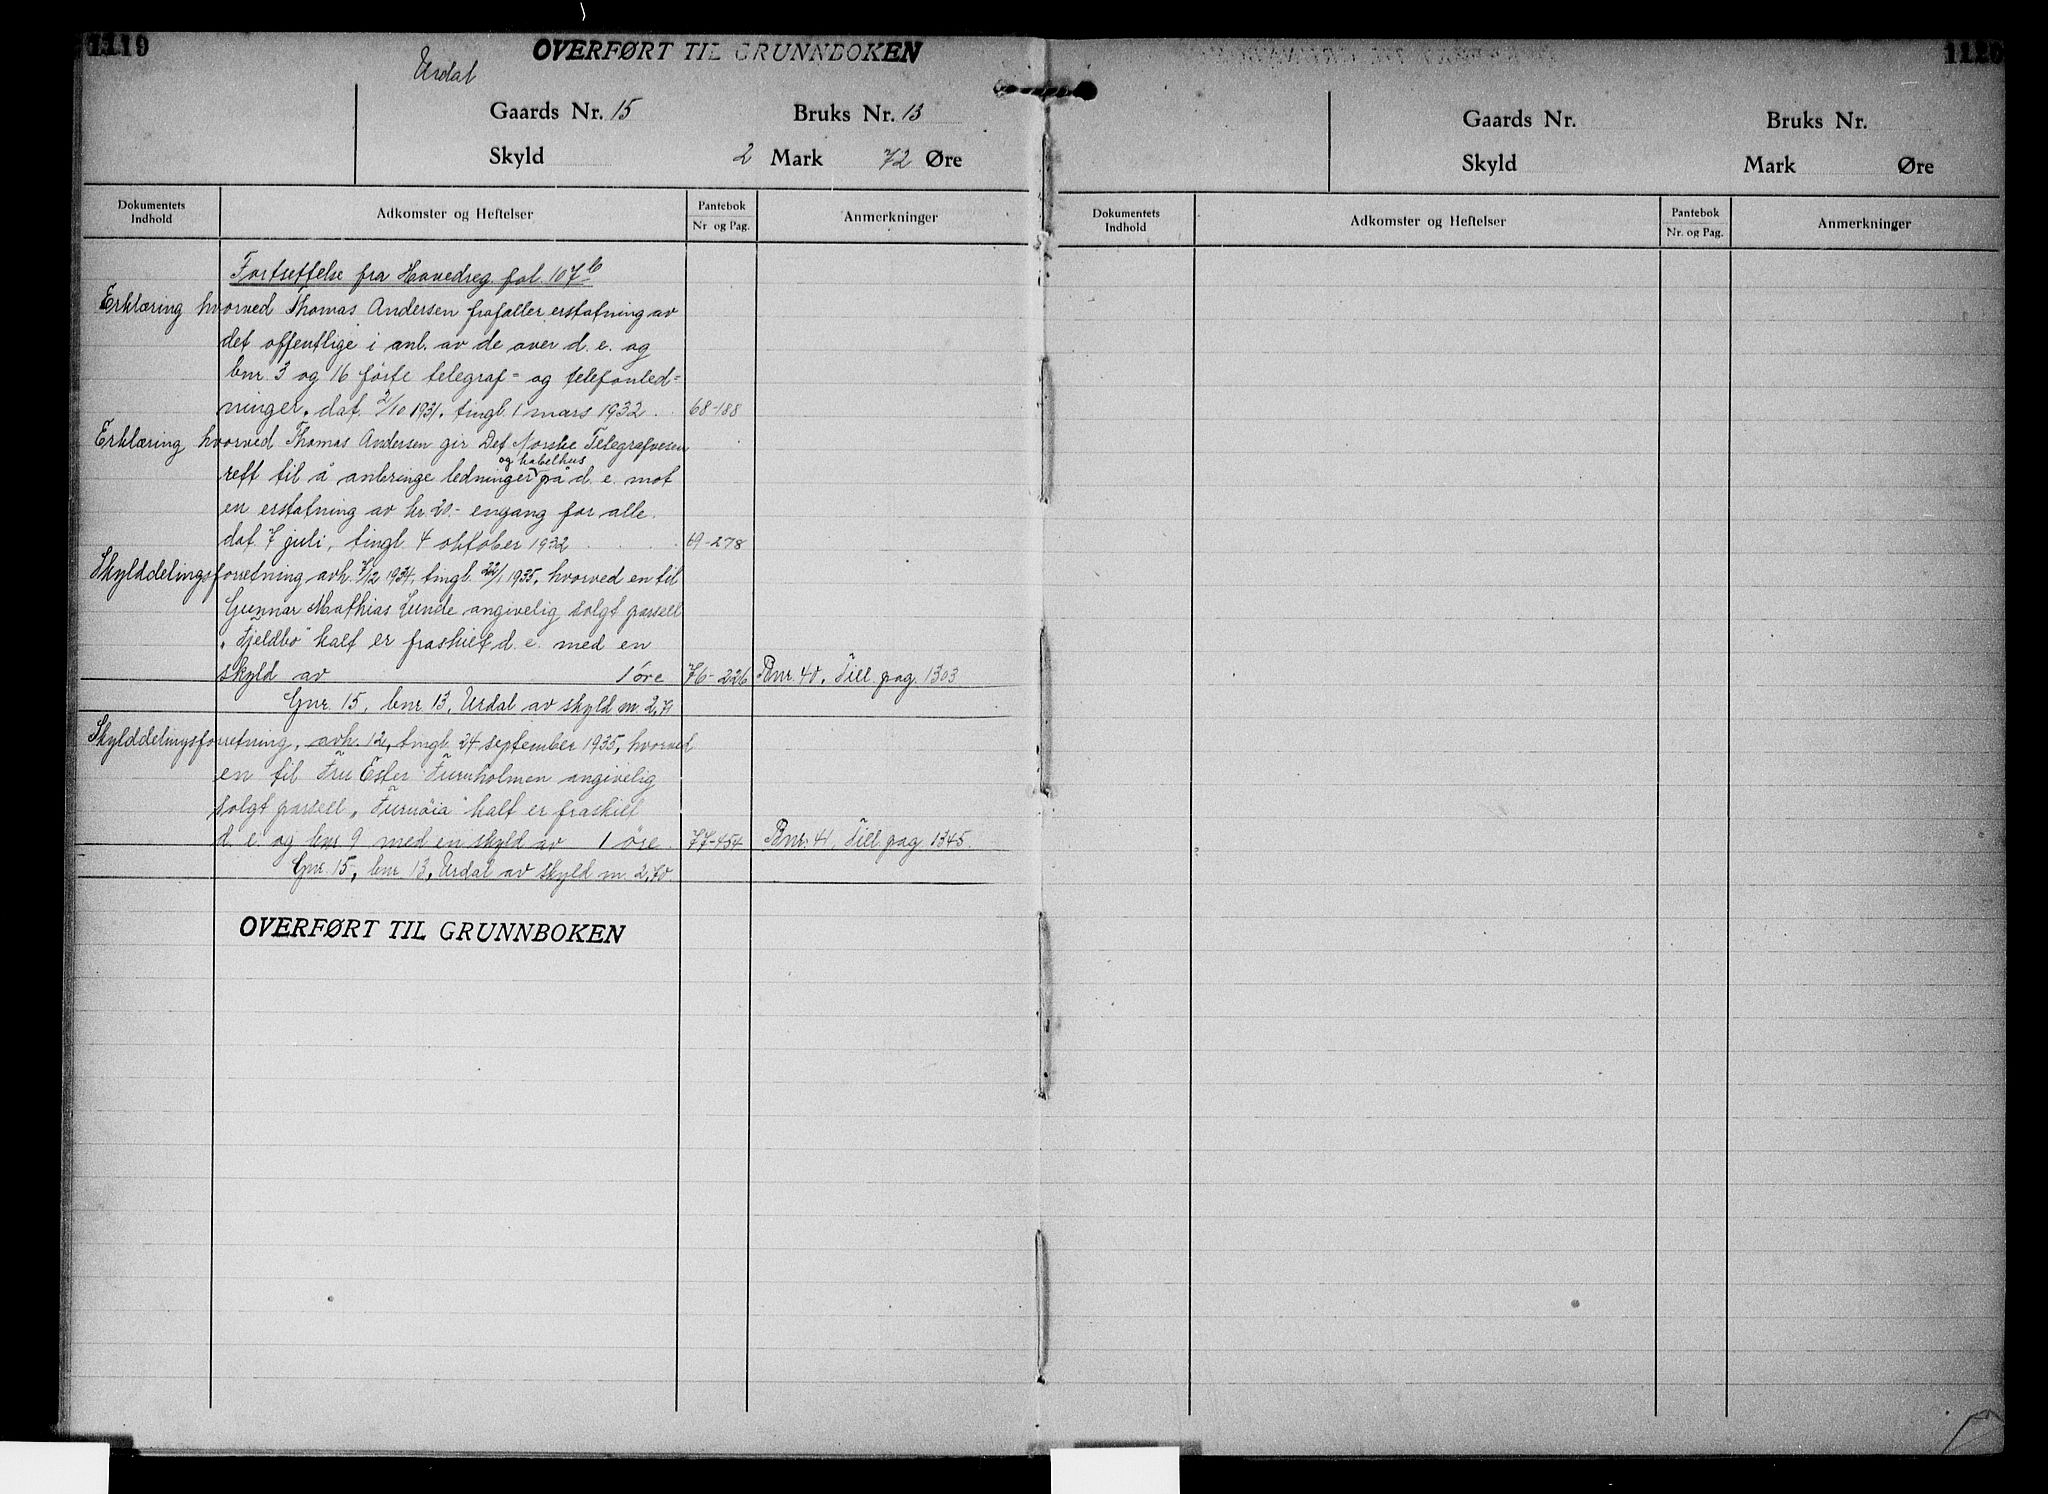 1119
OVERFØRT TIL GRUNNBOKEN
Urdal
Gaards Nr. 15 Bruks Nr. 13
Skyld 2 Mark 72 Øre
Dokumentets Indhold
Adkomster og Heftelser
Pantebok
Nr. og Pag.
Anmerkninger
Fortsettelse fra Hovedreg. fol. 107 b
Erklæring hvorved Thomas Andersen frafaller erstatning av
det offentlige i anl. av de over d. e. og
bnr. 3 og 16 førte telegraf- og telefonled-
ninger. dat. 2/10 1931. tingl. 1 mars 1932. 68-188
Erklæring hvorved Thomas Andersen gir Det Norske Telegrafvesen
og kabelhus
rett til å anbringe ledninger på d. e. mot
en erstatning av kr. 20.- engang for alle.
dat. 7 juli, tingl. 4 oktober 1932 69-278
Skylddelingsforretning avh. 7/12 1934, tingl. 22/1 1935, hvorved en til
Gunnar Mathias Lunde angivelig solgt parsell
„Fjeldbo" kalt er fraskilt d. e. med en
skyld av 1 øre 76-226 Bnr. 40, Till. pag. 1303
Gnr. 15, bnr. 13, Urdal av skyld m. 2,71
Skylddelingsforretning, avh. 12, tingl. 24 september 1935, hvorved
en til Fru Ester Furuholmen angivelig
solgt parsell „Furuøia" kalt er fraskilt
d. e. og bnr 9 med en skyld av 1 øre. 77-454 Bnr. 41, Till. pag. 1345.
Gnr. 15, bnr. 13, Urdal av skyld m. 2,70
OVERFØRT TIL GRUNNBOKEN
1120
Gaards Nr. Bruks Nr.
Skyld Mark Øre
Dokumentets Indhold
Adkomster og Heftelser
Pantebok
Nr. og Pag.
Anmerkninger